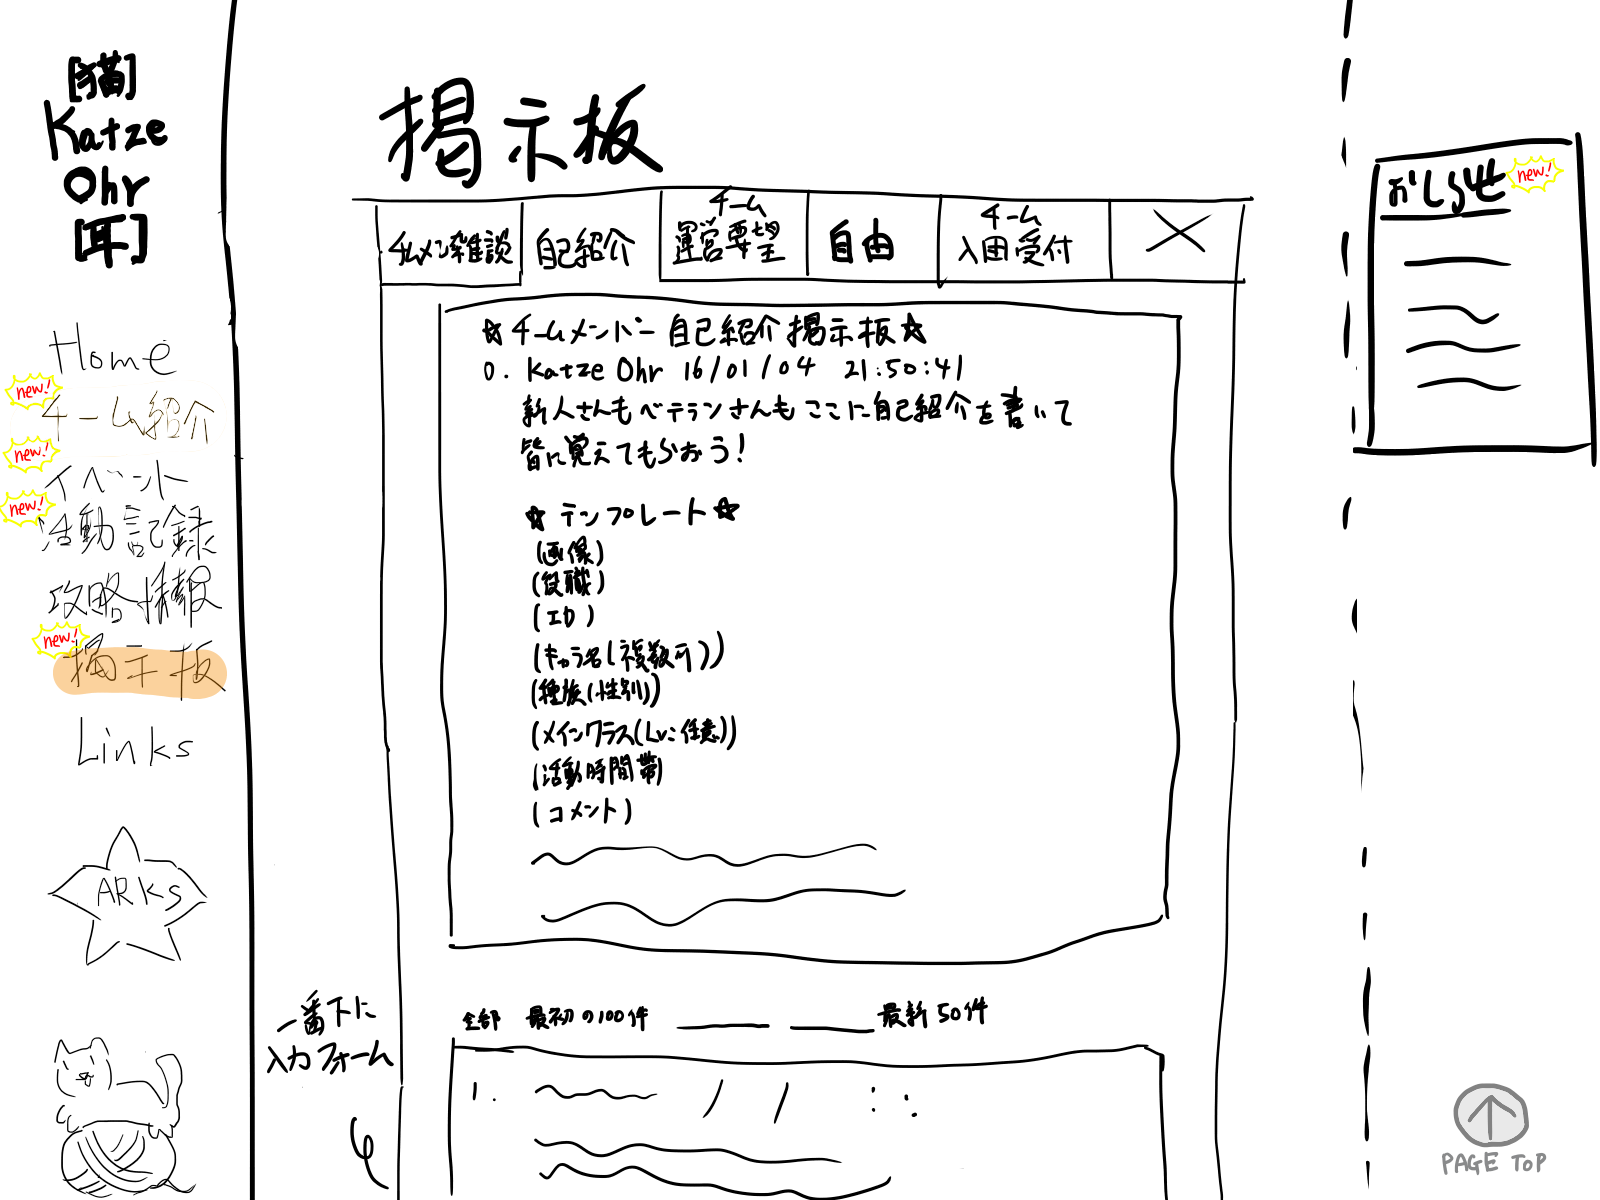 [猫]
Katze
Ohr
[耳]
Home
new!
チーム紹介
new!
イベント
new!
活動記録
攻略情報
new!
掲示板
Links
ARKS
掲示板
チムメン雑談
自己紹介
チーム
運営要望
自由
チーム
入団受付
☆チームメンバー自己紹介掲示板☆
0. Katze Ohr 16/01/04 21:50:41
新人さんもベテランさんもここに自己紹介を書いて
皆に覚えてもらおう!
☆テンプレート☆
(画像)
(役職)
(ID)
(キャラ名(複数可))
(種族(性別))
(メインクラス(Lv:任意))
(活動時間帯)
(コメント)
一番下に
入力フォーム
全部 最初の100件 最新50件
1.
おしらせ
new!
PAGE TOP